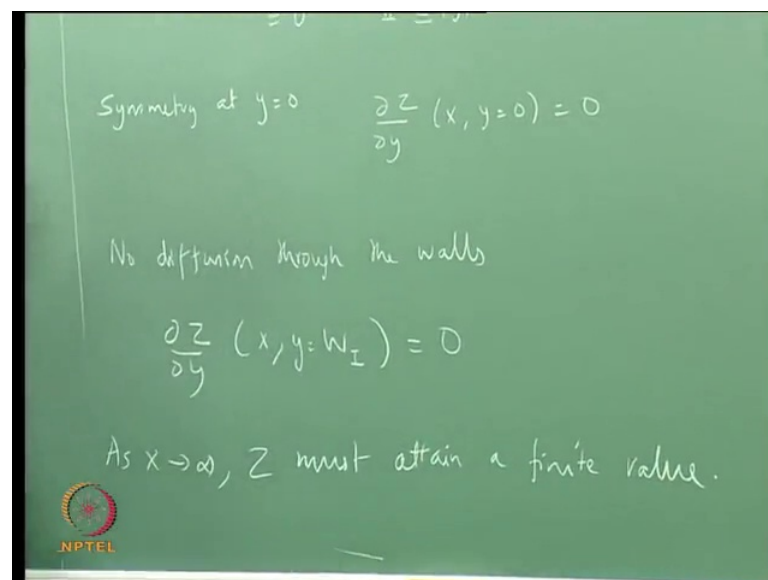 Symmetry at y=0 ∂Z/∂y (x, y=0) = 0
No diffusion through the walls
∂Z/∂y (x, y=W_I) = 0
As x→∞, Z must attain a finite value.
NPTEL